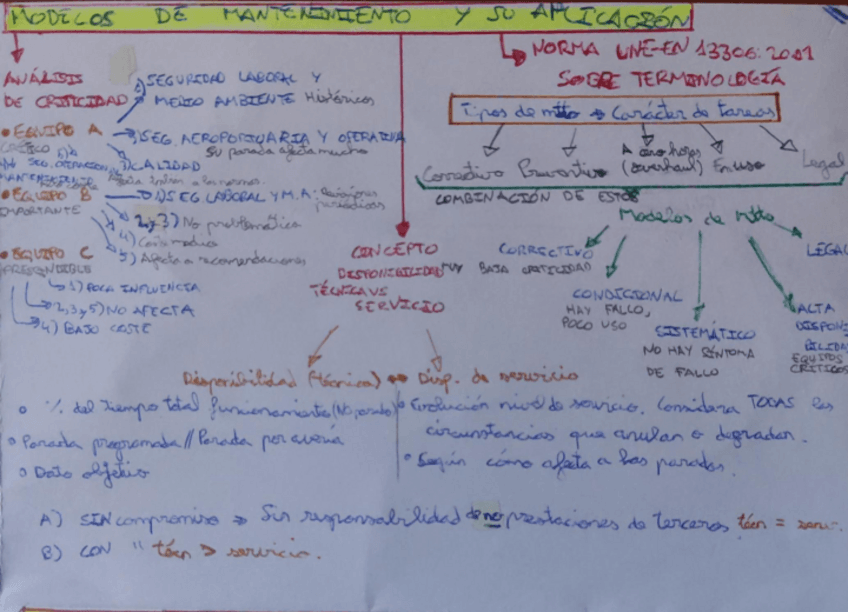 MODELOS DE MANTENIMIENTO Y SU APLICACIÓN
ANÁLISIS
DE CRITICIDAD
SEGURIDAD LABORAL Y
MEDIO AMBIENTE Históricos
• EQUIPO A
SEG. AEROPORTUARIA Y OPERATIVA
su parada afecta mucho
CALIDAD
MANTENIMIENTO
• EQUIPO B
IMPORTANTE
1) SEG LABORAL Y M.A: Revisiones
periódicas
2, 3) No problemática
4) Coste medio
5) Afecta a recomendaciones
• EQUIPO C
PRESCINDIBLE
1) POCA INFLUENCIA
2, 3, y 5) NO AFECTA
4) BAJO COSTE
CONCEPTO
DISPONIBILIDAD
TÉCNICA VS
SERVICIO
NORMA UNE-EN 13306:2011
SOBRE TERMINOLOGÍA
Tipos de mtto → Carácter de tareas
Correctivo Preventivo A cero horas (overhaul) En uso Legal
COMBINACIÓN DE ESTOS
Modelos de mtto
CORRECTIVO
MUY BAJA CRITICIDAD
CONDICIONAL
HAY FALLO,
POCO USO
SISTEMÁTICO
NO HAY SÍNTOMA
DE FALLO
ALTA
DISPONI
BILIDAD
EQUIPOS
CRÍTICOS
LEGAL
Disponibilidad (técnica) ↔ Disp. de servicio
o % del tiempo total funcionamiento (No parado)
o Parada programada // Parada por avería
o Dato objetivo
o Evolución nivel de servicio. Considera TODAS las
circunstancias que anulan o degradan.
o Según cómo afecta a las paradas.
A) SIN compromiso → Sin responsabilidad de no prestaciones de terceros técn = serv.
B) CON " técn > servicio.